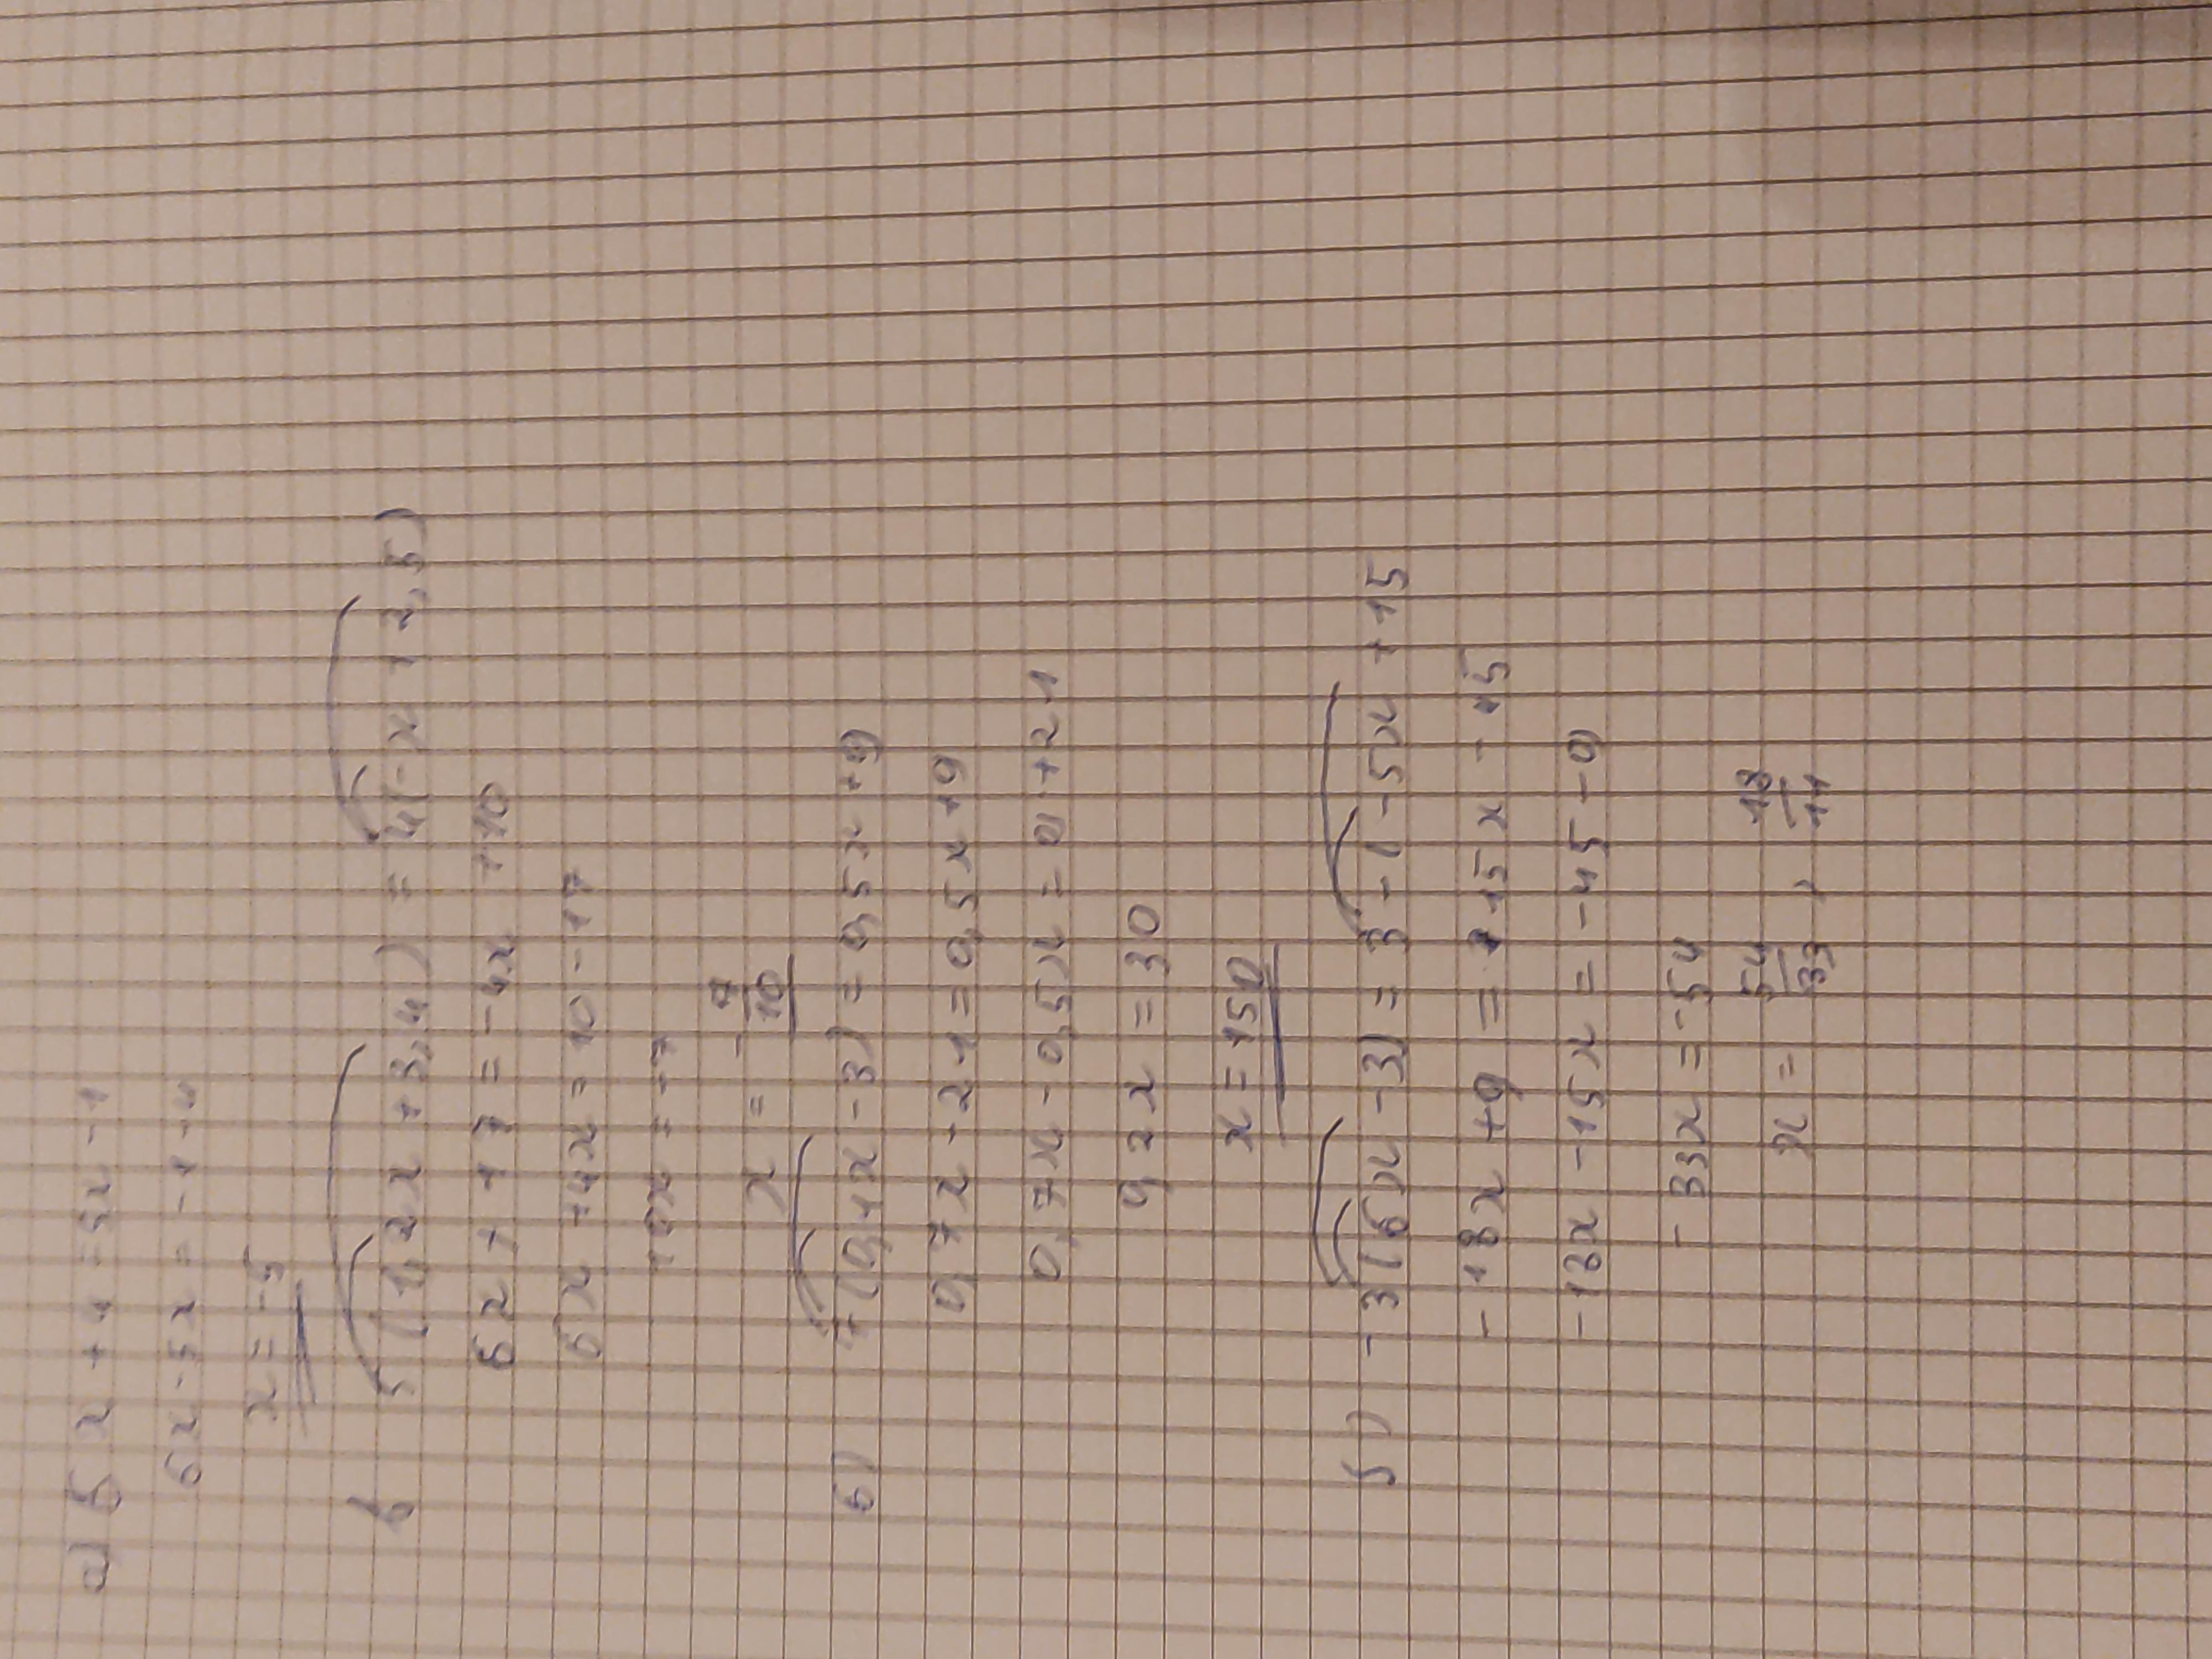 a) 6x + 4 = 5x - 1
6x - 5x = -1 - 4
x = -5
б 5(1,2x + 3,4) = 4(-x + 2,5)
6x + 17 = -4x + 10
6x + 4x = 10 - 17
10x = -7
x = -7/10
б) 7(0,1x - 3) = 0,5x + 9)
0,7x - 21 = 0,5x + 9
0,7x - 0,5x = 9 + 21
0,2x = 30
x = 150
5) -3(6x - 3) = 3 - (-5x + 15
-18x + 9 = 15x - 45
-18x - 15x = -45 - 9
-33x = -54
x = 54/33, 18/11